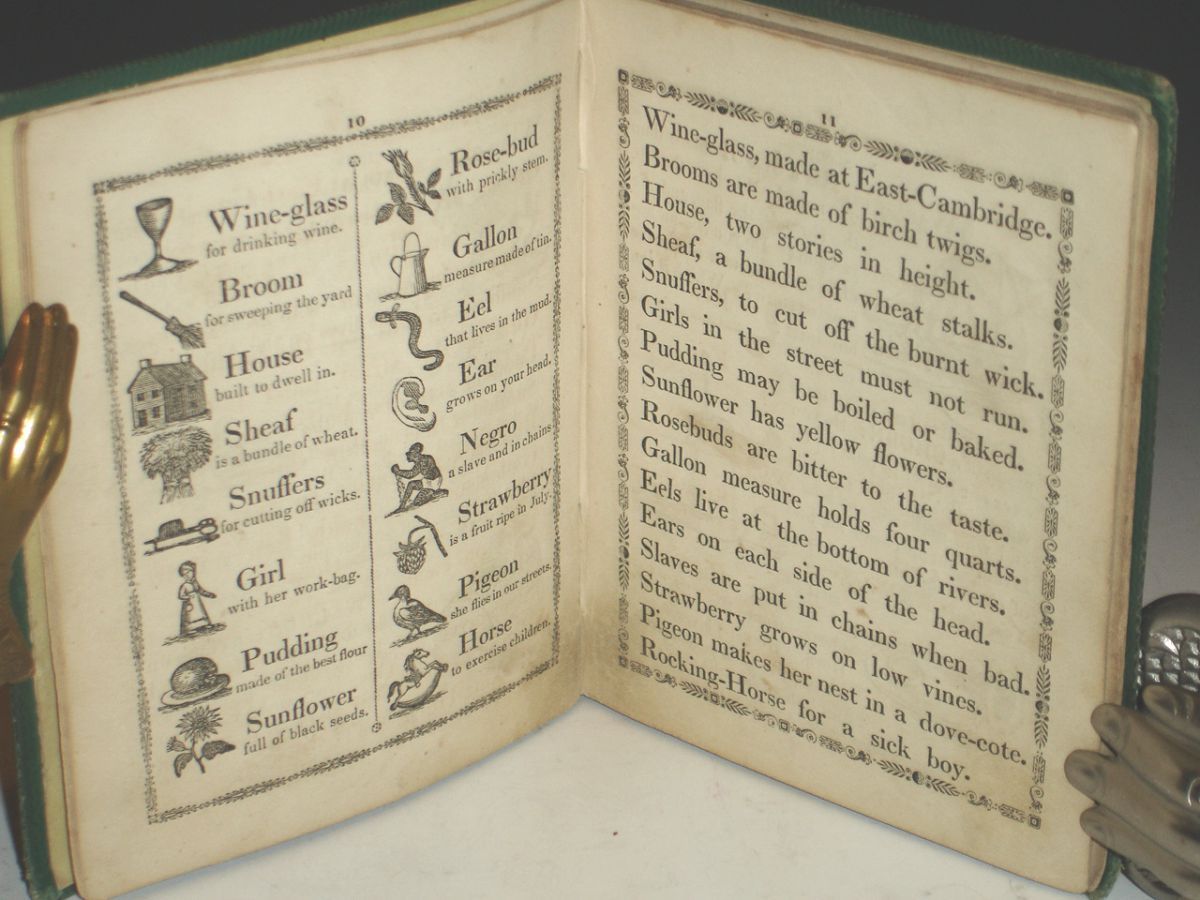 10
Wine-glass
for drinking wine.
Broom
for sweeping the yard
House
built to dwell in.
Sheaf
is a bundle of wheat.
Snuffers
for cutting off wicks.
Girl
with her work-bag.
Pudding
made of the best flour
Sunflower
full of black seeds.
Rose-bud
with prickly stem.
Gallon
measure made of tin.
Eel
that lives in the mud.
Ear
grows on your head.
Negro
a slave and in chains
Strawberry
is a fruit ripe in July.
Pigeon
she flies in our streets.
Horse
to exercise children.
11
Wine-glass, made at East-Cambridge.
Brooms are made of birch twigs.
House, two stories in height.
Sheaf, a bundle of wheat stalks.
Snuffers, to cut off the burnt wick.
Girls in the street must not run.
Pudding may be boiled or baked.
Sunflower has yellow flowers.
Rosebuds are bitter to the taste.
Gallon measure holds four quarts.
Eels live at the bottom of rivers.
Ears on each side of the head.
Slaves are put in chains when bad.
Strawberry grows on low vines.
Pigeon makes her nest in a dove-cote.
Rocking-Horse for a sick boy.